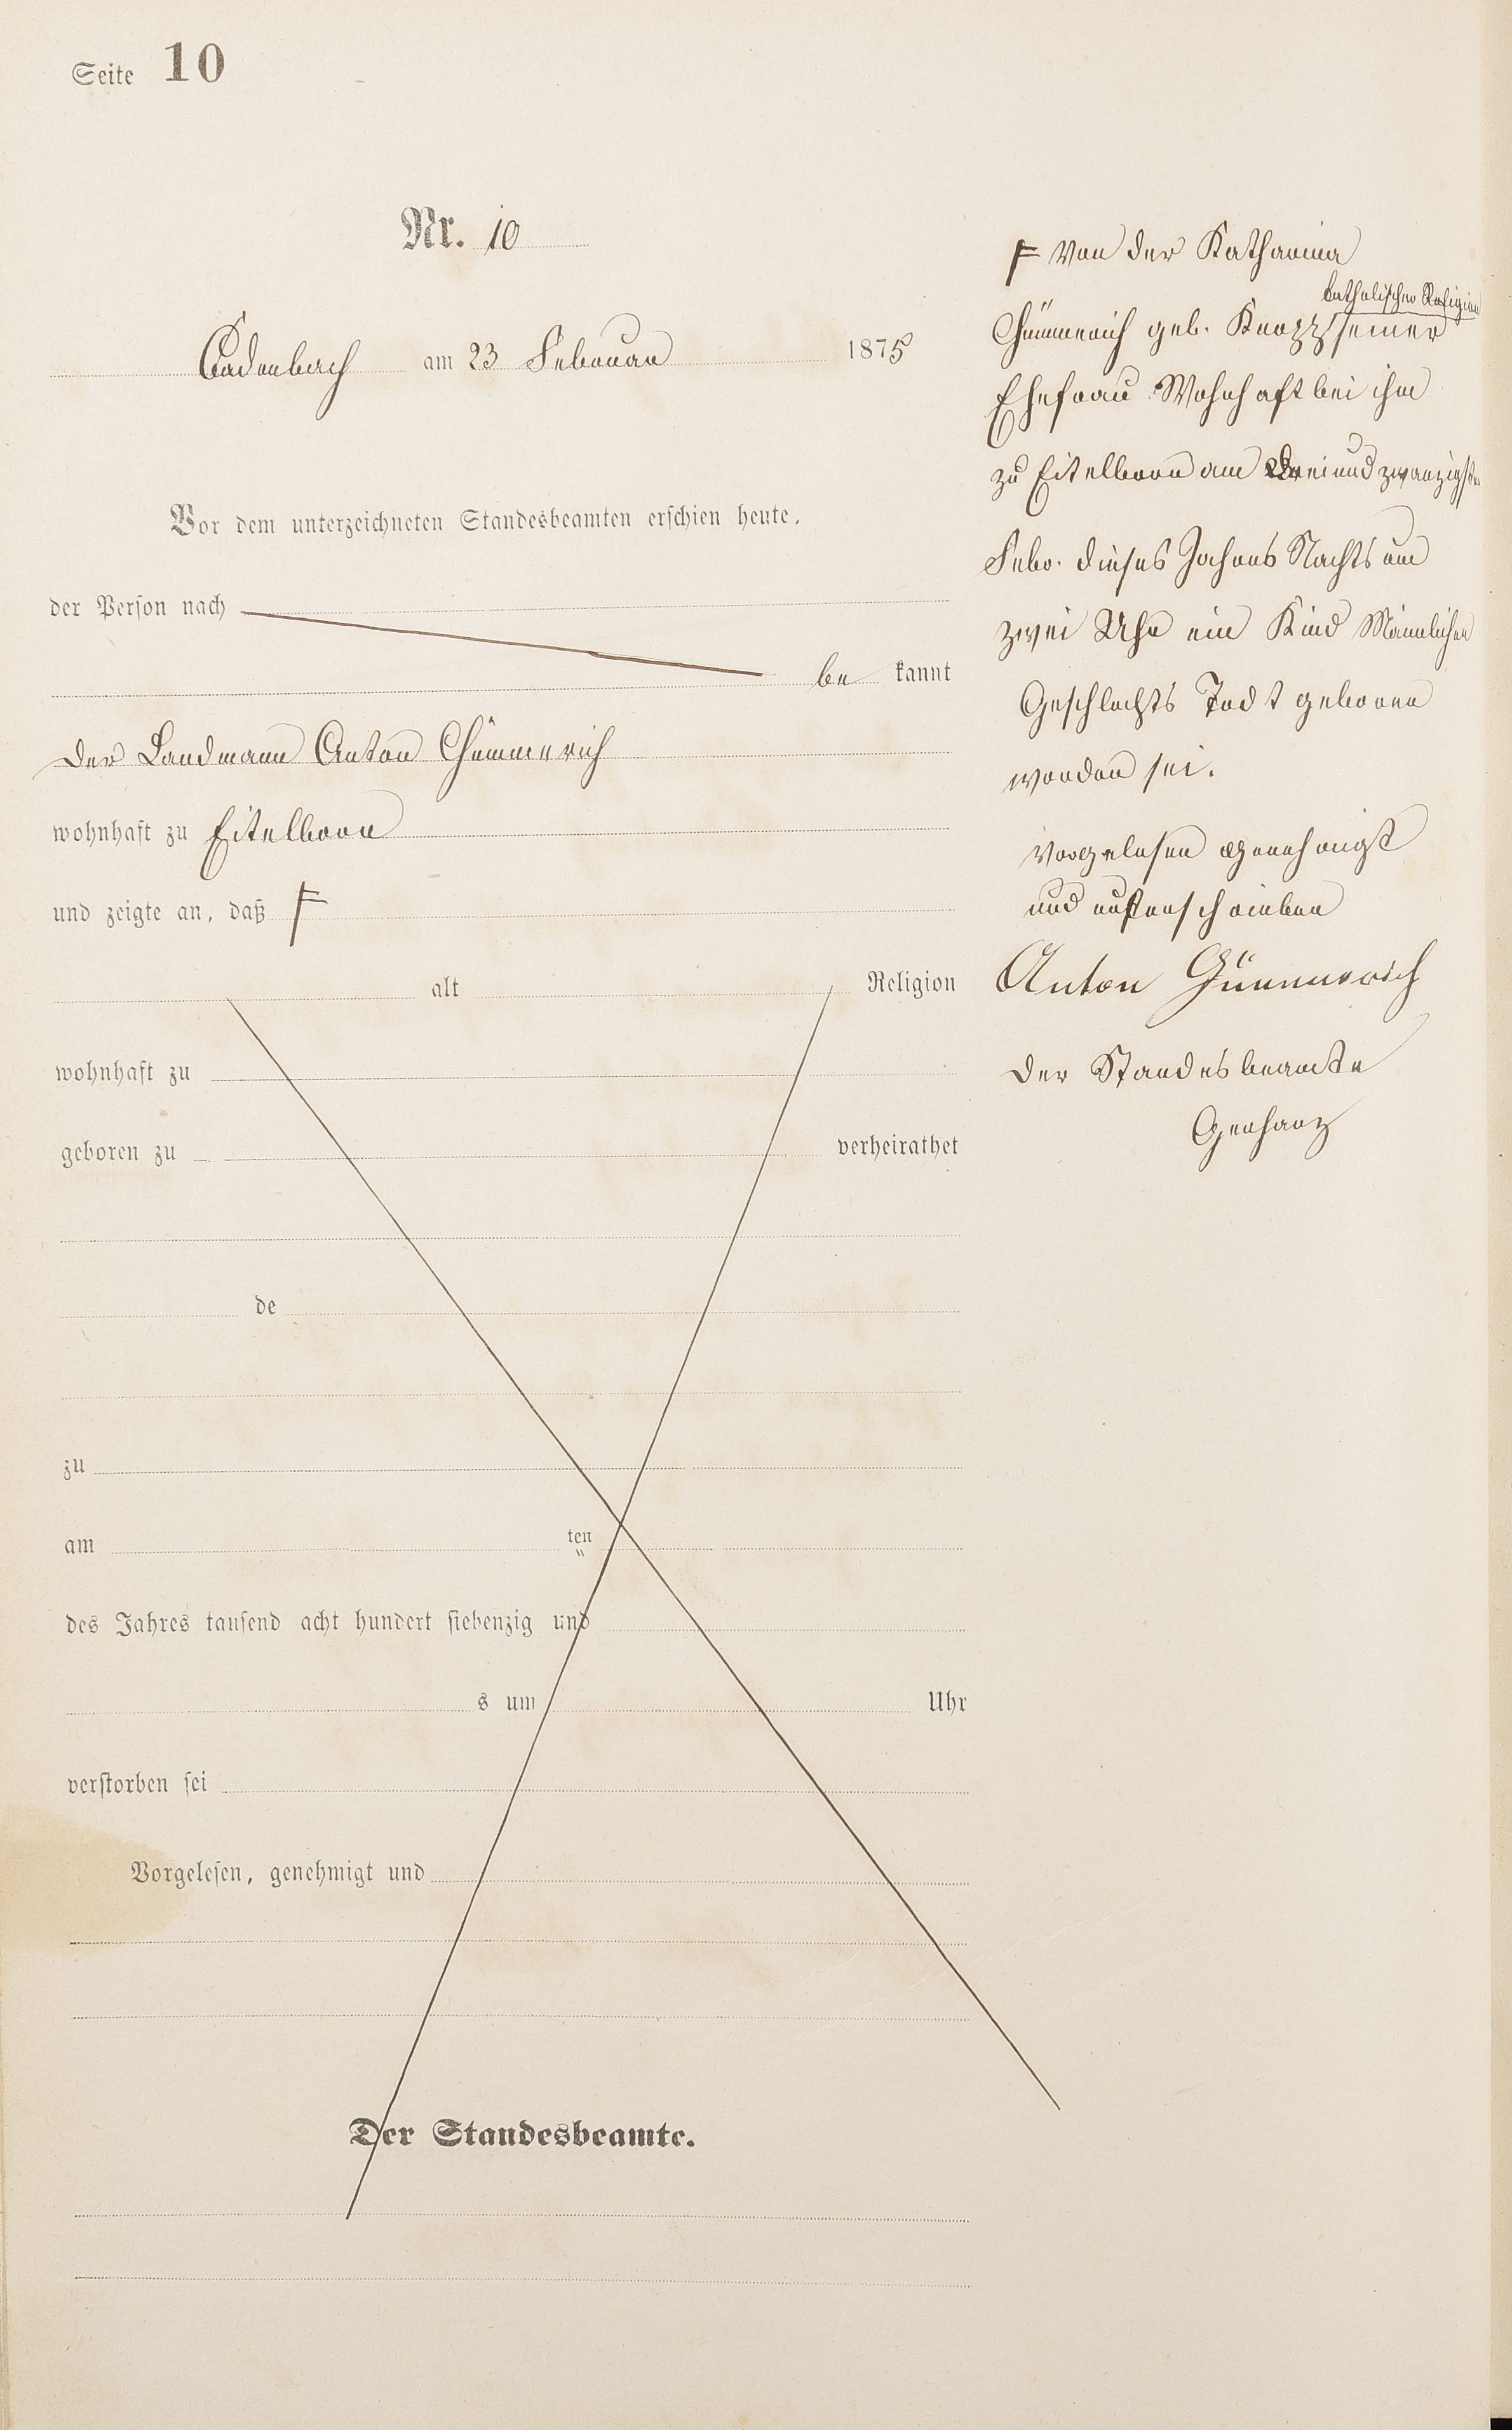 Seite 10
Nr. 10
Cadenbach am 23 Februar 1875
Vor dem unterzeichneten Standesbeamten erschien heute,
der Person nach
be kannt
der Landmann Anton Gümmerich
wohnhaft zu Eitelborn
und zeigte an, daß F
alt Religion
wohnhaft zu
geboren zu verheirathet
de
zu
am ten
des Jahres tausend acht hundert siebenzig und
s um Uhr
verstorben sei
Vorgelesen, genehmigt und
Der Standesbeamte.
F Von der Katharina
katholischer Religion
Gümmerich geb. Knopp seiner
Ehefrau Wohnhaft bei ihm
zu Eitelborn am Dreiundzwanzigsten
Febr. dieses Jahres Nachts um
zwei Uhr ein Kind Männlichen
Geschlechts Todt geboren
worden sei.
Vorgelesen genehmigt
und unterschrieben
Anton Gümmerich
Der Standesbeamte
Gerharz